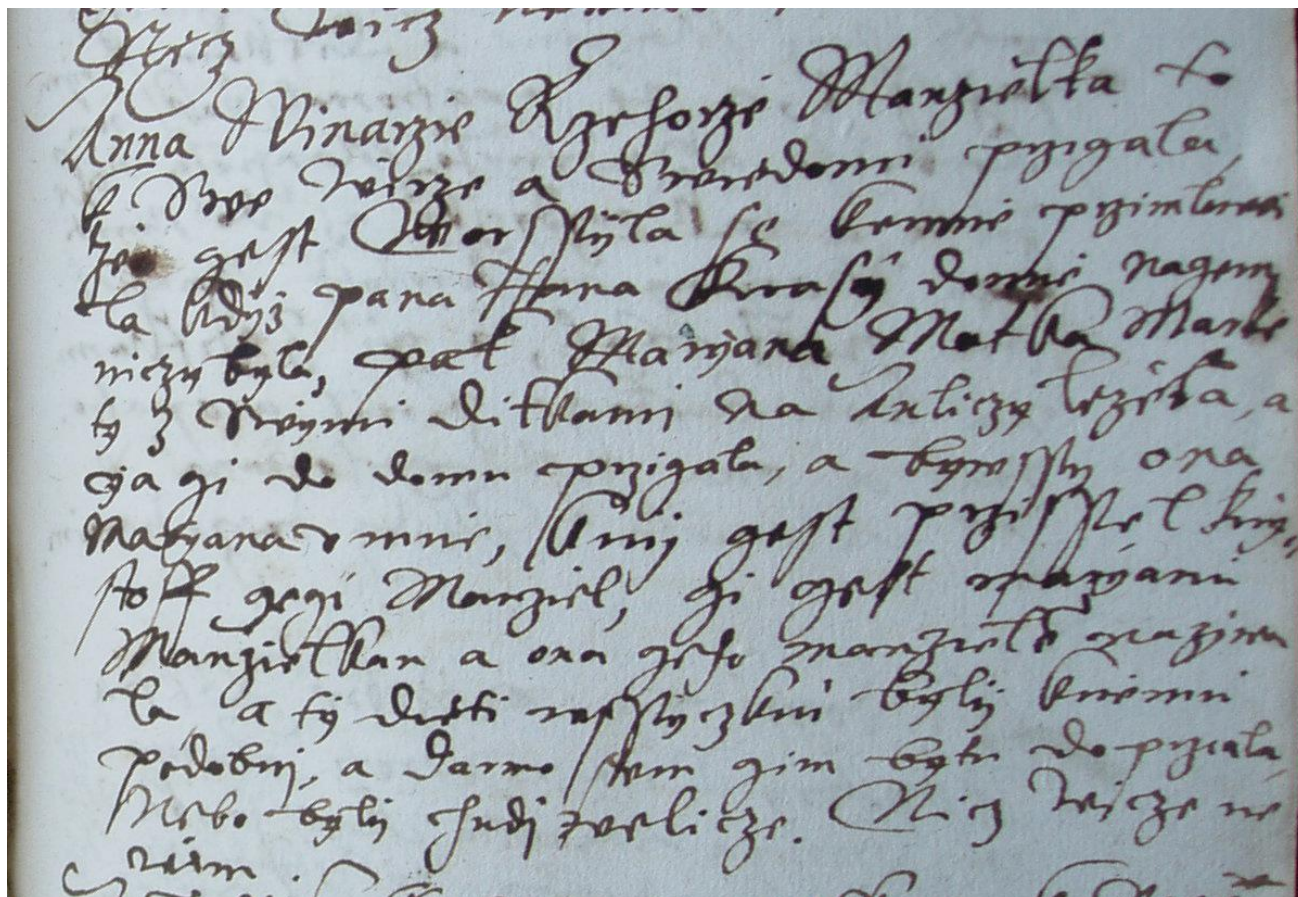 Nicz wicz
Anna Winarzie Rzehorze Manzielka to
k Swe wirze a Swiedomi przigala
że gest Worssyla se kemnie przimluwi
la kdyz pana Jana Krasy domie nagem
niczy byla, pak Maryana Matka Marke
ty z Swymi Ditkami na Auliczy ležela, a
ya gi do domu przigala, a bywssy ona
Maryana v mnie, k nij gest przissiel Kry„
stoff gegi Manziel, gi gest maryanu
Manzielkau a ona geho manziele nazywa
la a ty dieti wssyczknij byly kniemu
podobnij, a darmo sem gim bytu doprzala,
Nebo byly chudj welicze. Nicz wicze ne
wim.